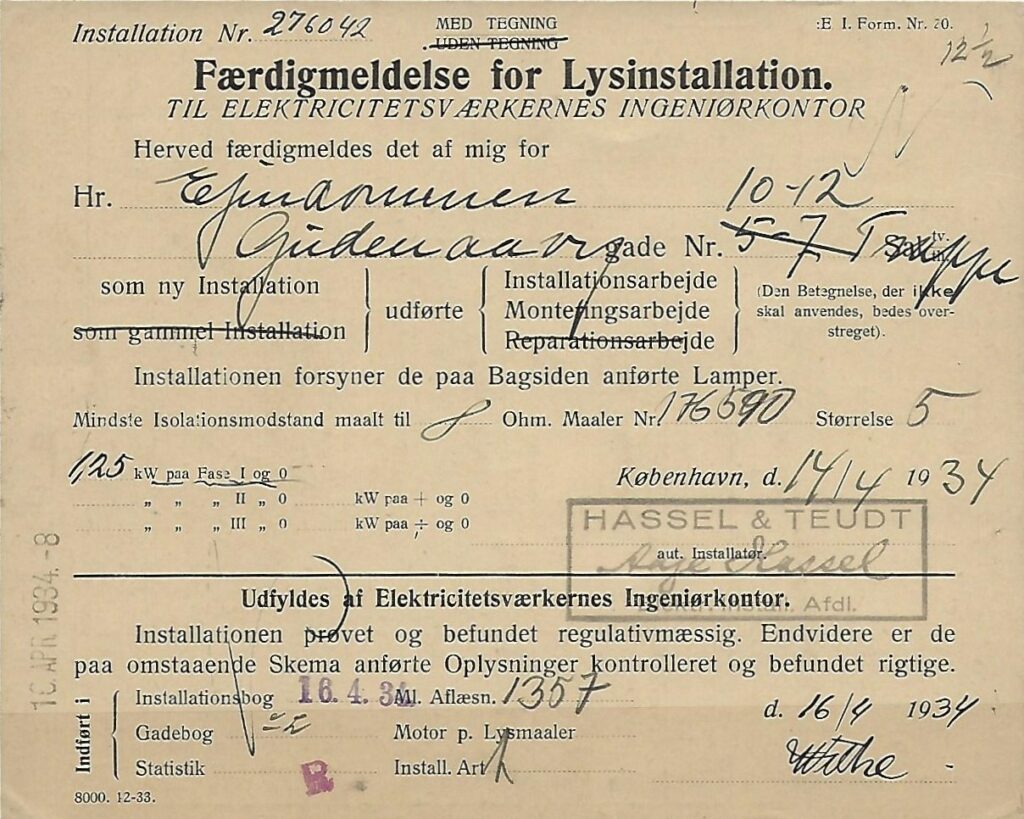 Installation Nr. 276042
MED TEGNING
UDEN TEGNING
E. I. Form. Nr. 20.
12 ½
Færdigmeldelse for Lysinstallation.
TIL ELEKTRICITETSVÆRKERNES INGENIØRKONTOR
Herved færdigmeldes det af mig for
Hr. Ejendommen 10-12
Gudenaavej gade Nr. 5-7 Trappe
som ny Installation
som gammel Installation
udførte
Installationsarbejde
Monteringsarbejde
Reparationsarbejde
(Den Betegnelse, der ikke
skal anvendes, bedes over-
streget).
Installationen forsyner de paa Bagsiden anførte Lamper.
Mindste Isolationsmodstand maalt til Ohm. Maaler Nr. 176590 Størrelse 5
1,25 kW paa Fase I og 0
„ „ „ II „ 0 kW paa + og 0
„ „ „ III „ 0 kW paa ÷ og 0
København, d. 14/4 1934
HASSEL & TEUDT
aut. Installatør.
Aage Hassel
Elektr. Install. Afdl.
16 APR 1934.-8
Udfyldes af Elektricitetsværkernes Ingeniørkontor.
Installationen prøvet og befundet regulativmæssig. Endvidere er de
paa omstaaende Skema anførte Oplysninger kontrolleret og befundet rigtige.
Indført i
Installationsbog 16.4.34 Ml. Aflæsn. 1357
Gadebog Motor p. Lysmaaler
Statistik R Install. Art
d. 16/4 1934
8000. 12-33.